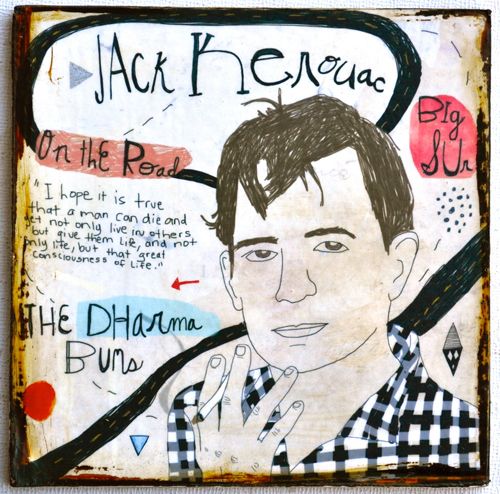 JAck Kerouac
On thE RoaD
Big
SUr
"I hope it is true
that a man can die and
yet not only live in others
but give them life, and not
only life, but that great
consciousness of life."
THE DHarma
BUMs